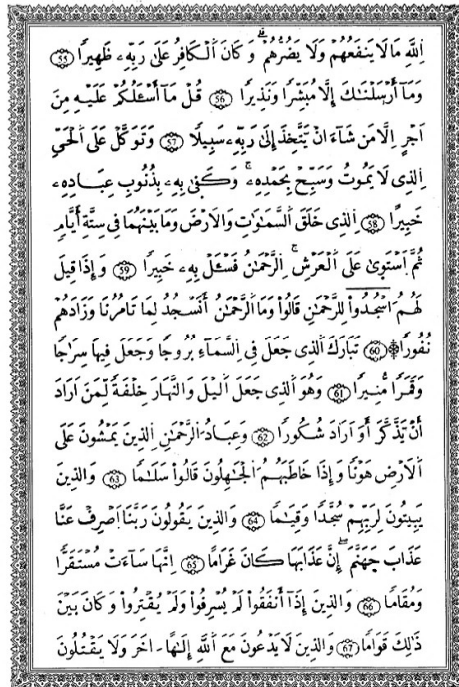 اِللَّهِ مَا لَا يَنفَعُهُمْ وَلَا يَضُرُّهُمْ وَكَانَ اَلْكَافِرُ عَلَىٰ رَبِّهِۦ ظَهِيرًا ٥٥
وَمَآ أَرْسَلْنَـٰكَ إِلَّا مُبَشِّرًا وَنَذِيرًا ٥٦ قُلْ مَآ أَسْـَٔلُكُمْ عَلَيْهِ مِنَ
اَجْرٍ اِلَّا مَن شَآءَ انْ يَّتَّخِذَ إِلَىٰ رَبِّهِۦ سَبِيلًا ٥٧ وَتَوَكَّلْ عَلَى اَلْحَيِّ
اِلذِى لَا يَمُوتُ وَسَبِّحْ بِحَمْدِهِۦ وَكَفَىٰ بِهِۦ بِذُنُوبِ عِبَادِهِۦ
خَبِيرًا ٥٨ اِلذِى خَلَقَ اَلسَّمَـٰوَٰتِ وَالَارْضَ وَمَا بَيْنَهُمَا فِى سِتَّةِ أَيَّامٍ
ثُمَّ اَسْتَوَىٰ عَلَى اَلْعَرْشِ اِلرَّحْمَـٰنُ فَسْـَٔلْ بِهِۦ خَبِيرًا ٥٩ وَإِذَا قِيلَ
لَهُمُ اُسْجُدُوا۟ لِلرَّحْمَـٰنِ قَالُوا۟ وَمَا اَلرَّحْمَـٰنُ أَنَسْجُدُ لِمَا تَامُرُنَا وَزَادَهُمْ
نُفُورًا ٦٠ تَبَارَكَ اَلذِى جَعَلَ فِى اِلسَّمَآءِ بُرُوجًا وَجَعَلَ فِيهَا سِرَاجًا
وَقَمَرًا مُّنِيرًا ٦١ وَهُوَ اَلذِى جَعَلَ اَليْلَ وَالنَّهَارَ خِلْفَةً لِّمَنَ اَرَادَ
أَنْ يَّذَّكَّرَ أَوَ اَرَادَ شُكُورًا ٦٢ وَعِبَادُ اُلرَّحْمَـٰنِ اِلذِينَ يَمْشُونَ عَلَى
اَلَارْضِ هَوْنًا وَإِذَا خَاطَبَهُمُ اُلْجَـٰهِلُونَ قَالُوا۟ سَلَـٰمًا ٦٣ وَالذِينَ
يَبِيتُونَ لِرَبِّهِمْ سُجَّدًا وَقِيَـٰمًا ٦٤ وَالذِينَ يَقُولُونَ رَبَّنَا اَصْرِفْ عَنَّا
عَذَابَ جَهَنَّمَ إِنَّ عَذَابَهَا كَانَ غَرَامًا ٦٥ اِنَّهَا سَآءَتْ مُسْتَقَرًّا
وَمُقَامًا ٦٦ وَالذِينَ إِذَآ أَنفَقُوا۟ لَمْ يُسْرِفُوا۟ وَلَمْ يُقْتِرُوا۟ وَكَانَ بَيْنَ
ذَٰلِكَ قَوَامًا ٦٧ وَالذِينَ لَا يَدْعُونَ مَعَ اَللَّهِ إِلَـٰهًا اخَرَ وَلَا يَقْتُلُونَ